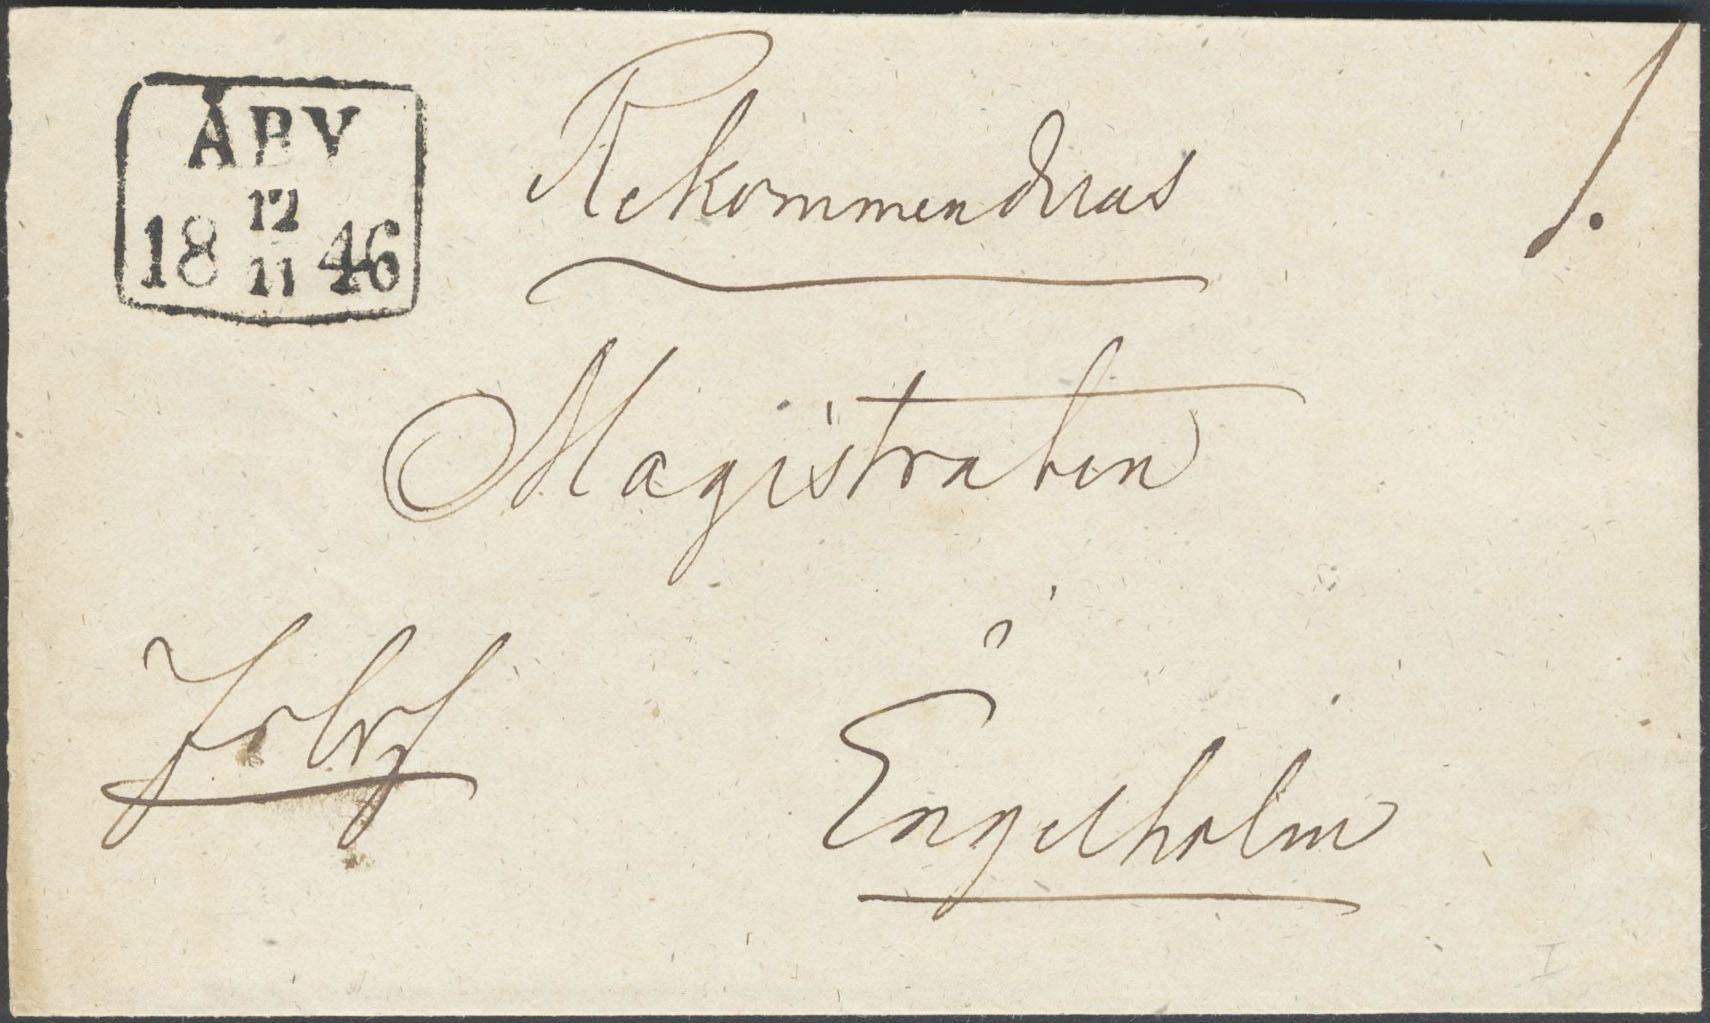 ÅBY
12
18 46
11
Rekommenderas
1.
Magistraten
i
Frbrf
Engelholm